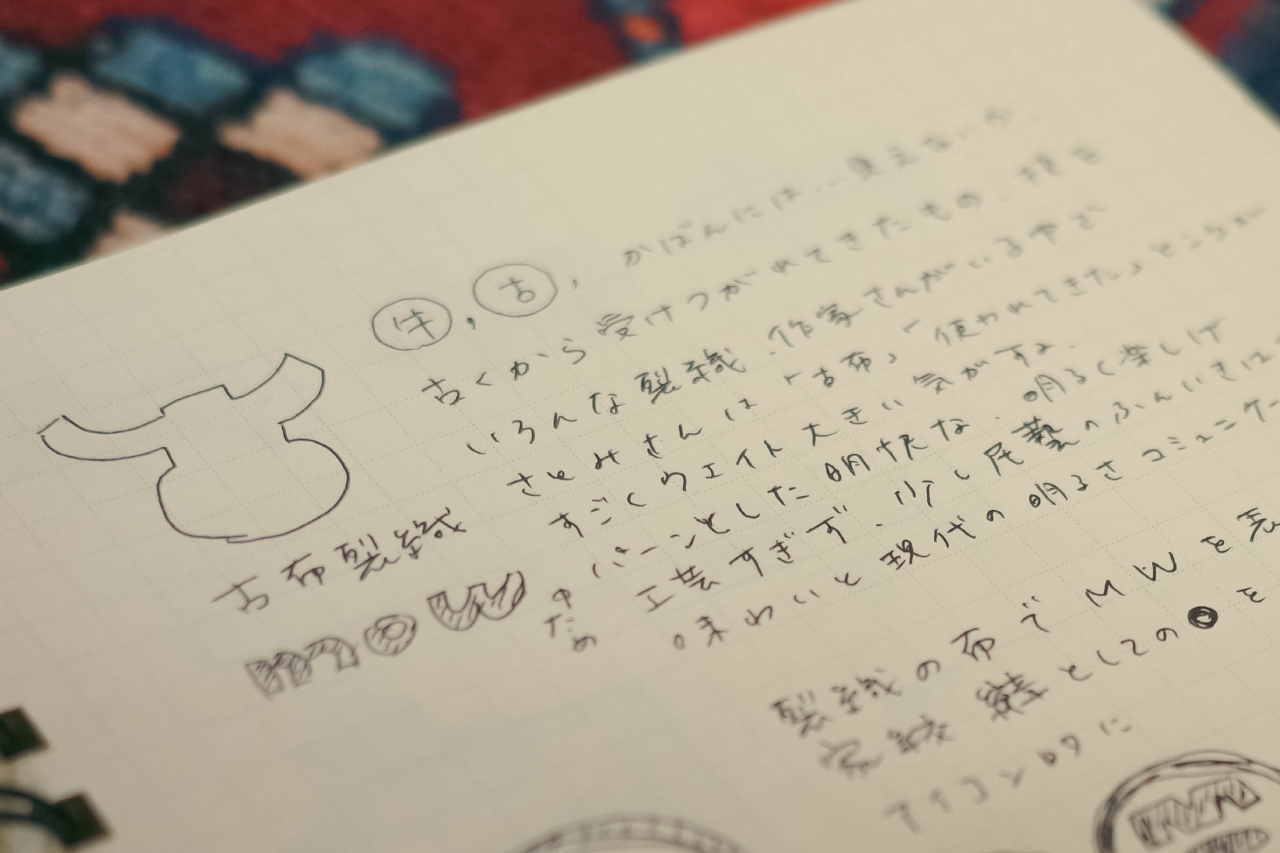 牛, 古, かばんには… 見えないが
古くから受けつがれてきたもの。
いろんな裂織、作家さんがいる中で
さとみさんは「古布」「使われてきた」ところが
すごくウェイト大きい気がする。
パーンとした明快な、明るく楽しげ
工芸すぎず、少し民藝のふんいきは
味わいと現代の明るさコミュニケー
のため
古布裂織
mow
裂織の布でMWを表
家紋 としての を
アイコン的に